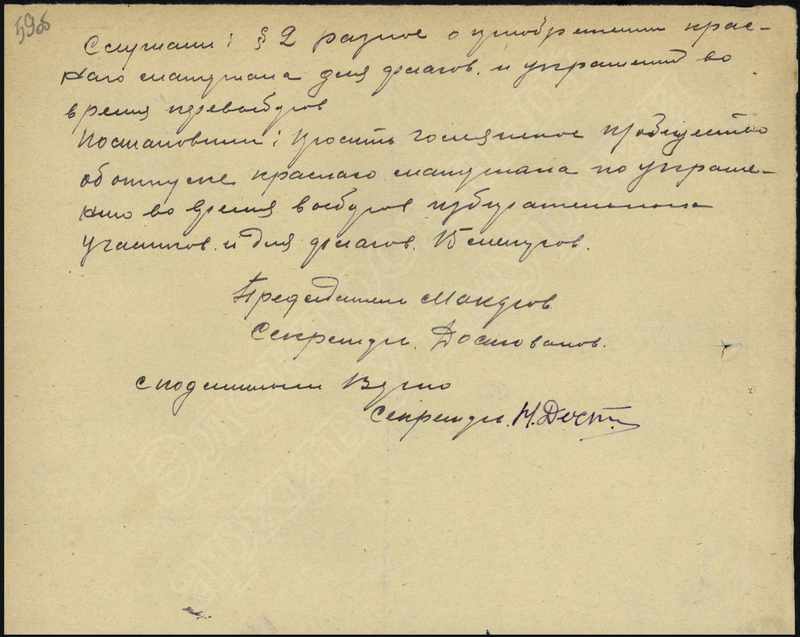 59об
Слушали: § 2 разное о приобретении крас-
ного матерьяла для флагов. и украшений во
время перевыборов
Постановили: Просить
об отпуске красного матерьяла по украше-
нию во время выборов избирательных
участков. и для флагов. 15 метров.
Председатель
Секретарь. Достованов.
с подлинным верно
Секретарь. Н. Дост.